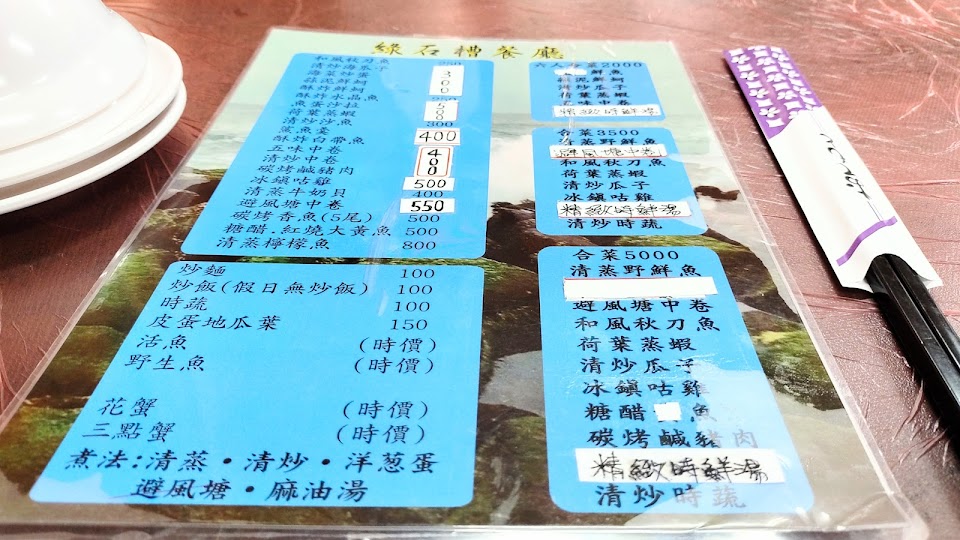 綠石槽餐廳
和風秋刀魚 250
清炒海瓜子
海菜炒蛋 300
蒜泥鮮蚵
酥炸鮮蚵
酥炸水晶魚 250
魚蛋沙拉
荷葉蒸蝦 500
清炒沙魚 300
蒸魚羹
酥炸白帶魚 400
五味中卷
清炒中卷 400
碳烤鹹豬肉
冰鎮咕雞 500
清蒸牛奶貝 400
避風塘中卷 550
碳烤香魚(5尾) 500
糖醋.紅燒大黃魚 500
清蒸檸檬魚 800
炒麵 100
炒飯(假日無炒飯) 100
時蔬 100
皮蛋地瓜葉 150
活魚 (時價)
野生魚 (時價)
花蟹 (時價)
三點蟹 (時價)
煮法:清蒸・清炒・洋蔥蛋
避風塘・麻油湯
2000
鮮魚
蒜泥鮮蚵
清炒瓜子
荷葉蒸蝦
五味中卷
精緻時鮮湯
合菜3500
清蒸野鮮魚
避風塘中卷
和風秋刀魚
荷葉蒸蝦
清炒瓜子
冰鎮咕雞
精緻時鮮湯
清炒時蔬
合菜5000
清蒸野鮮魚
避風塘中卷
和風秋刀魚
荷葉蒸蝦
清炒瓜子
冰鎮咕雞
糖醋 魚
碳烤鹹豬肉
精緻時鮮湯
清炒時蔬